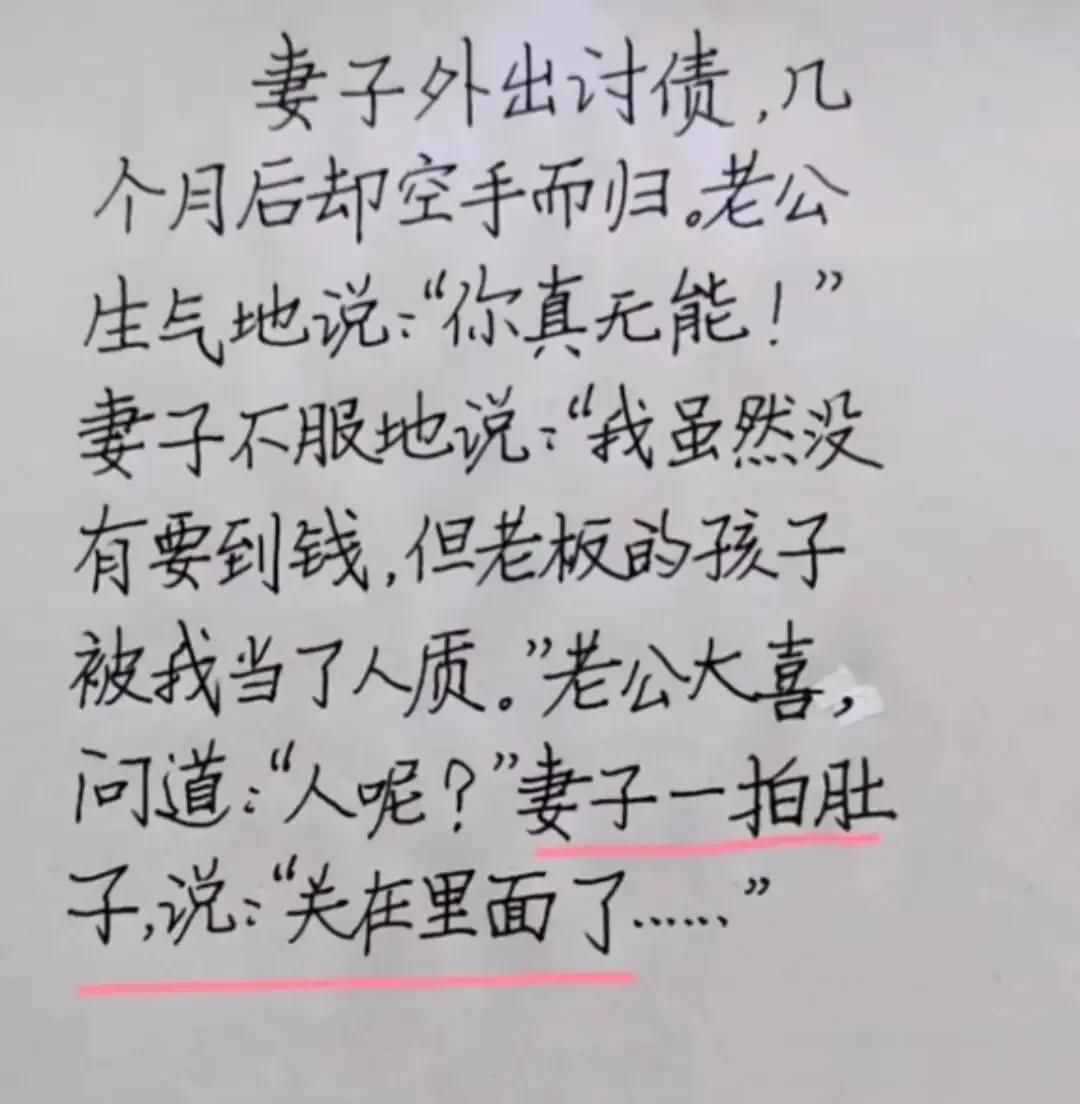 妻子外出讨债,几
个月后却空手而归。老公
生气地说:“你真无能!”
妻子不服地说:“我虽然没
有要到钱,但老板的孩子
被我当了人质。”老公大喜,
问道:“人呢?”妻子一拍肚
子,说:“关在里面了……”